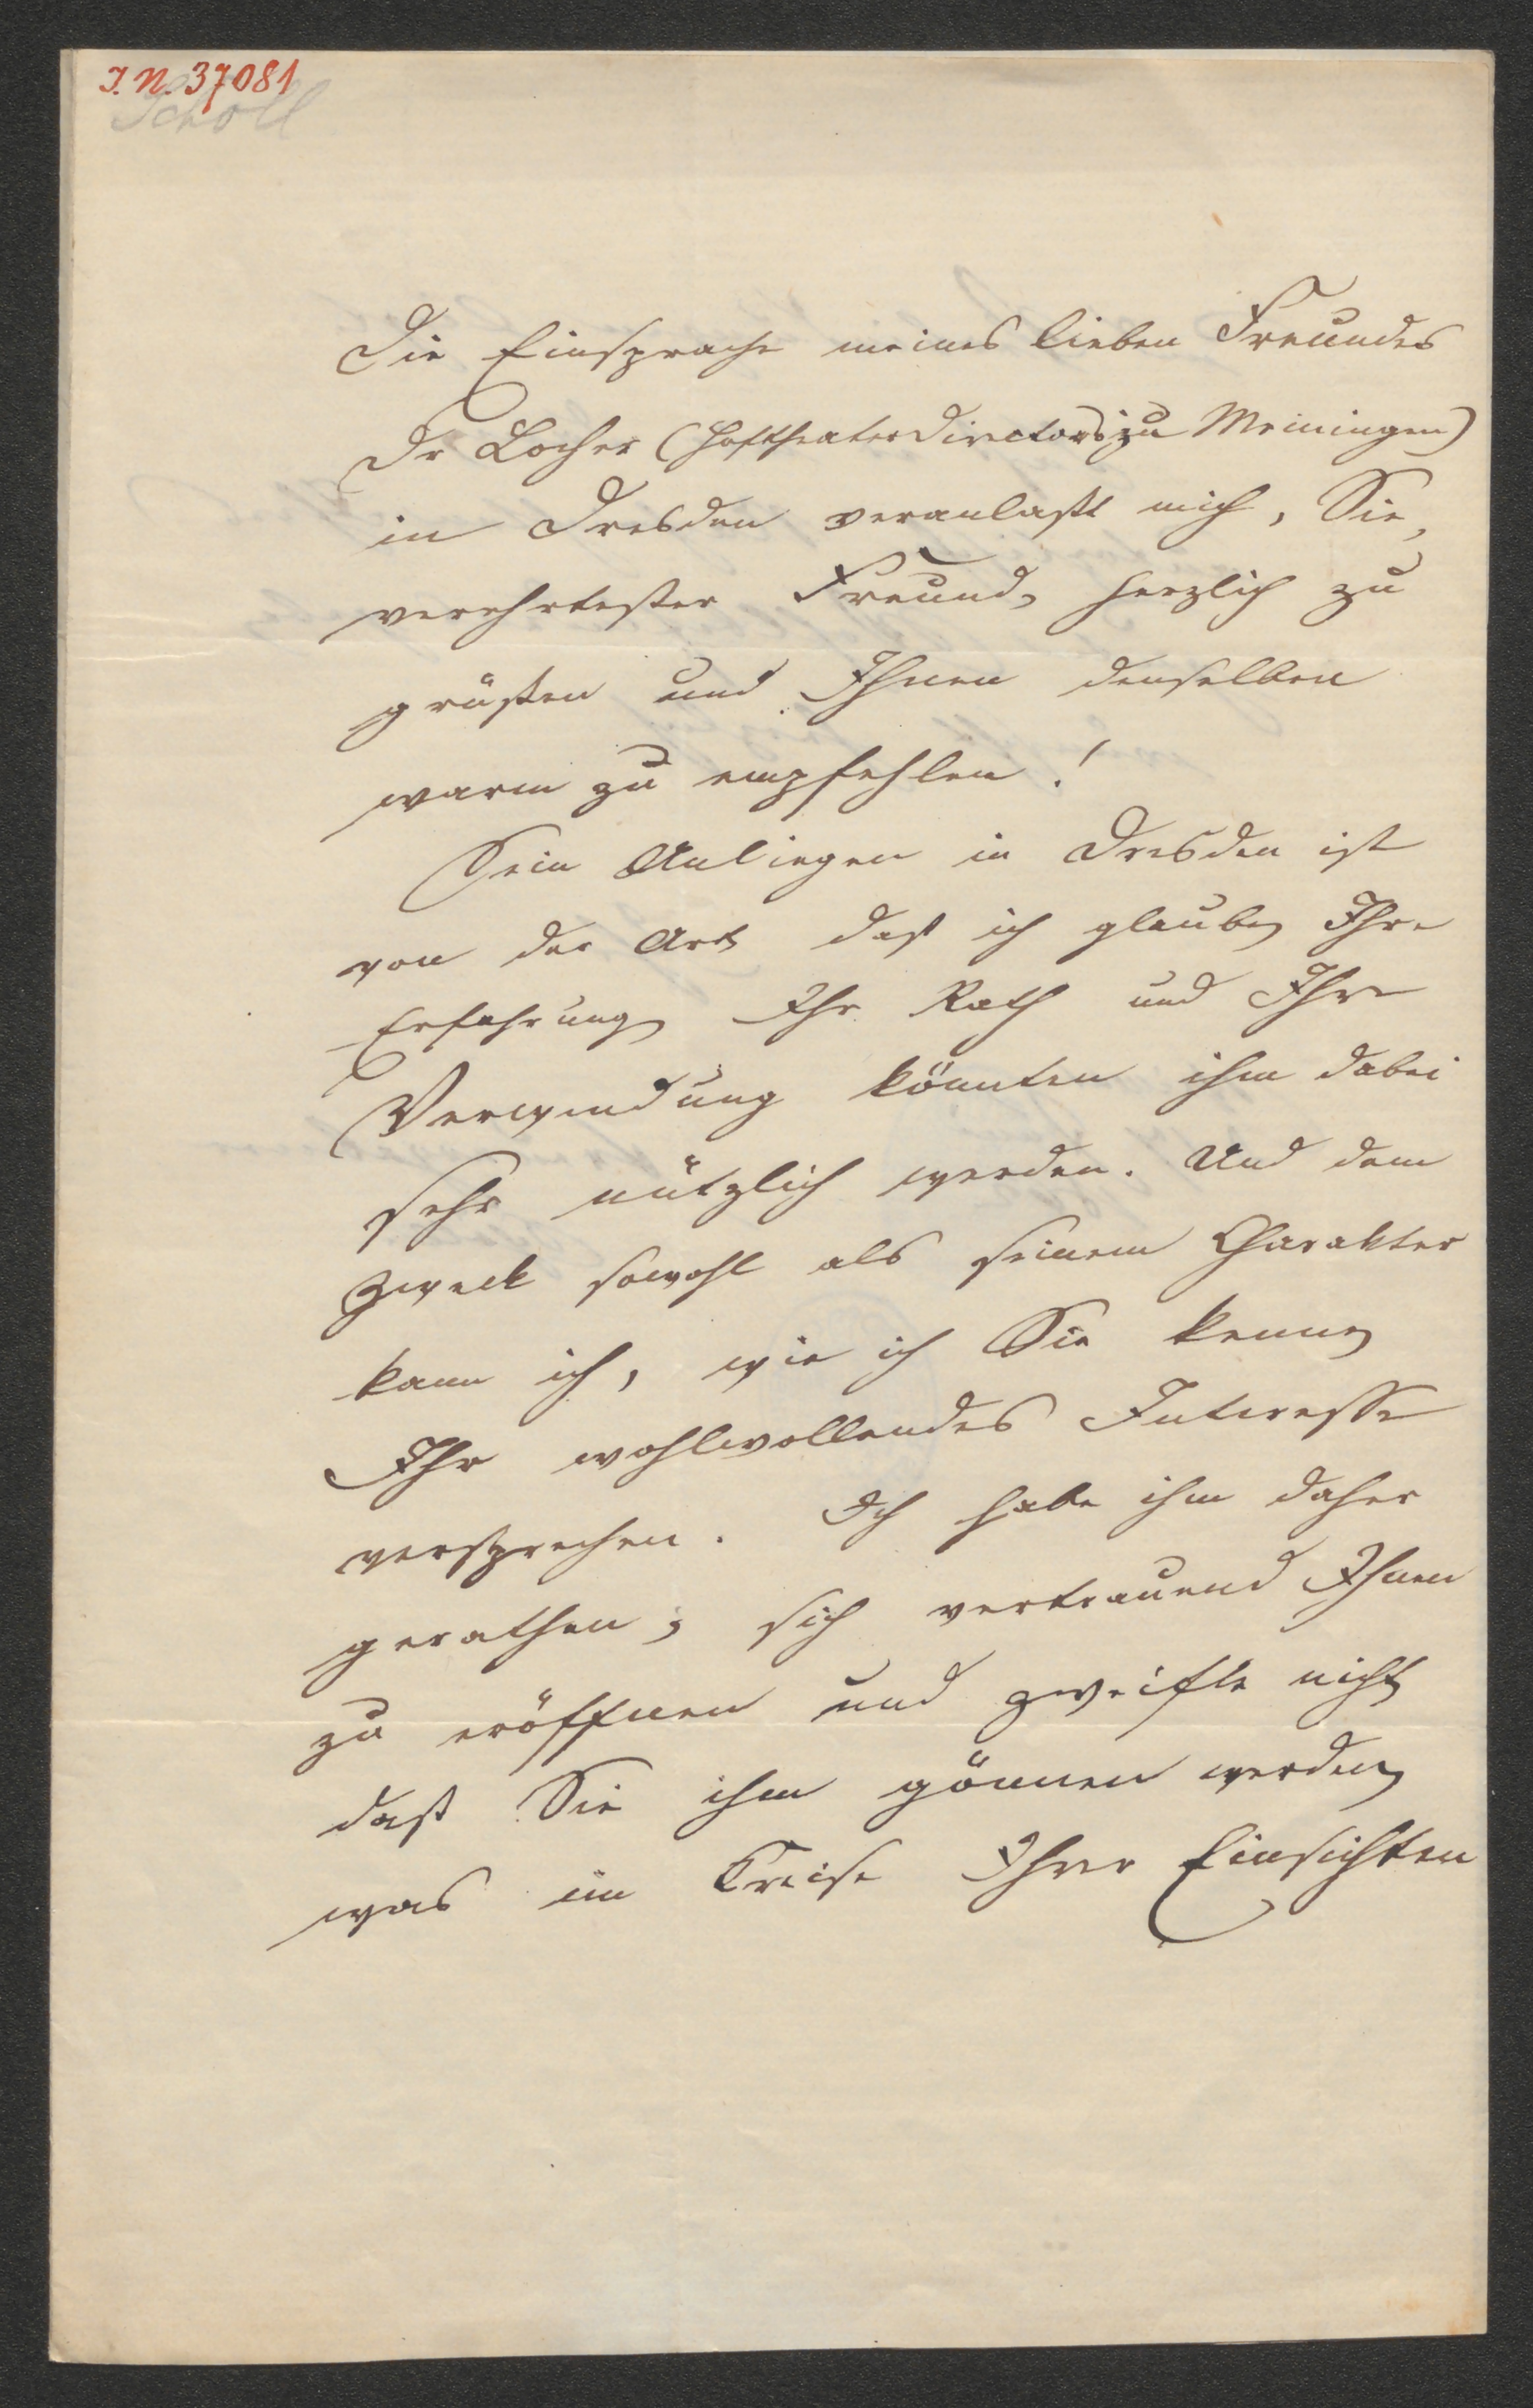 I. N. 37081
Scholl
Die Einsprache meines lieben Freundes
Dr Locher (Hoftheaterdirectors zu Meiningen)
in Dresden veranlaßt mich, Sie,
verehrtester Freund, herzlich zu
grüßen und Ihnen denselben
warm zu empfehlen!
Sein Anliegen in Dresden ist
von der Art daß ich glaube, Ihre
Erfahrung, Ihr Rath und Ihre
Verwendung könnten ihm dabei
sehr nützlich werden. Und dem
Zweck sowohl als seinem Charakter
kann ich, wie ich Sie kenne,
Ihr wohlwollendes Interesse
versprechen. Ich habe ihm daher
gerathen, sich vertrauend Ihnen
zu eröffnen und zweifle nicht,
daß Sie ihm gönnen werden,
was im Kreise Ihrer Einsichten